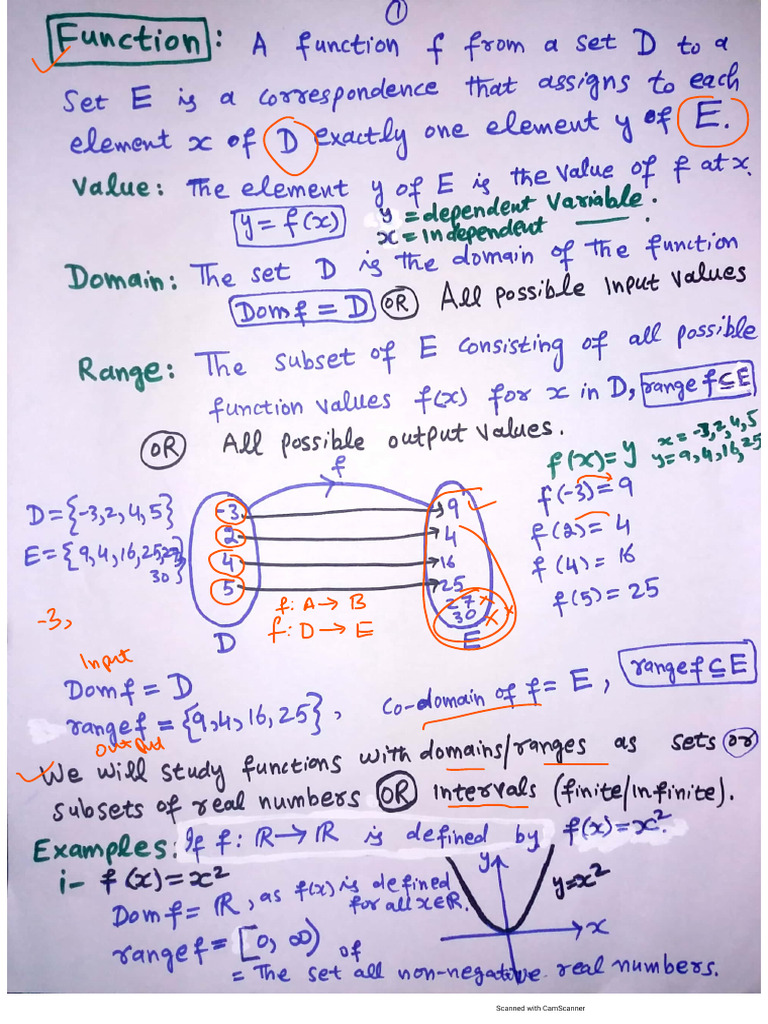 ①
Function: A function f from a set D to a
set E is a correspondence that assigns to each
element x of D exactly one element y of E.
Value: The element y of E is the value of f at x.
y = f(x) y = dependent Variable.
x = Independent
Domain: The set D is the domain of the function
Dom f = D OR All possible Input values
Range: The subset of E consisting of all possible
function values f(x) for x in D, range f ⊆ E
OR All possible output values.
f(x) = y x = -3, 2, 4, 5
y = 9, 4, 16, 25
f
D = {-3, 2, 4, 5} -3 9 f(-3) = 9
E = {9, 4, 16, 25, 27, 2 4 f(2) = 4
30} 4 16 f(4) = 16
5 25 f(5) = 25
-3, f: A → B 27 x
f: D → E 30 x x
D E
Input
Dom f = D
range f = {9, 4, 16, 25}, co-domain of f = E, range f ⊆ E
output
We will study functions with domains/ranges as sets or
subsets of real numbers OR intervals (finite/infinite).
Examples: If f: ℝ → ℝ is defined by f(x) = x².
i- f(x) = x² y y = x²
Dom f = ℝ, as f(x) is defined
for all x ∈ ℝ.
range f = [0, ∞) x
= The set of all non-negative real numbers.
Scanned with CamScanner